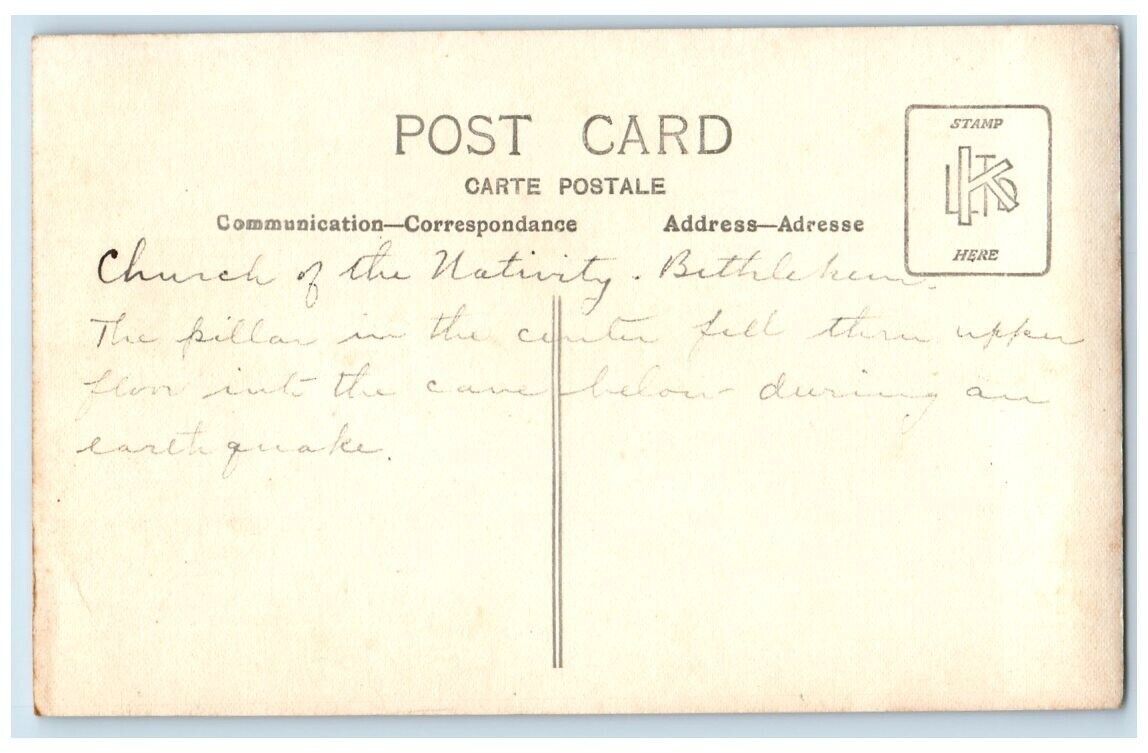 POST CARD
CARTE POSTALE
Communication—Correspondance Address—Adresse
STAMP
K LTD
HERE
Church of the Nativity. Bethlehem.
The pillar in the center fell thru upper
floor into the cave below during an
earthquake.